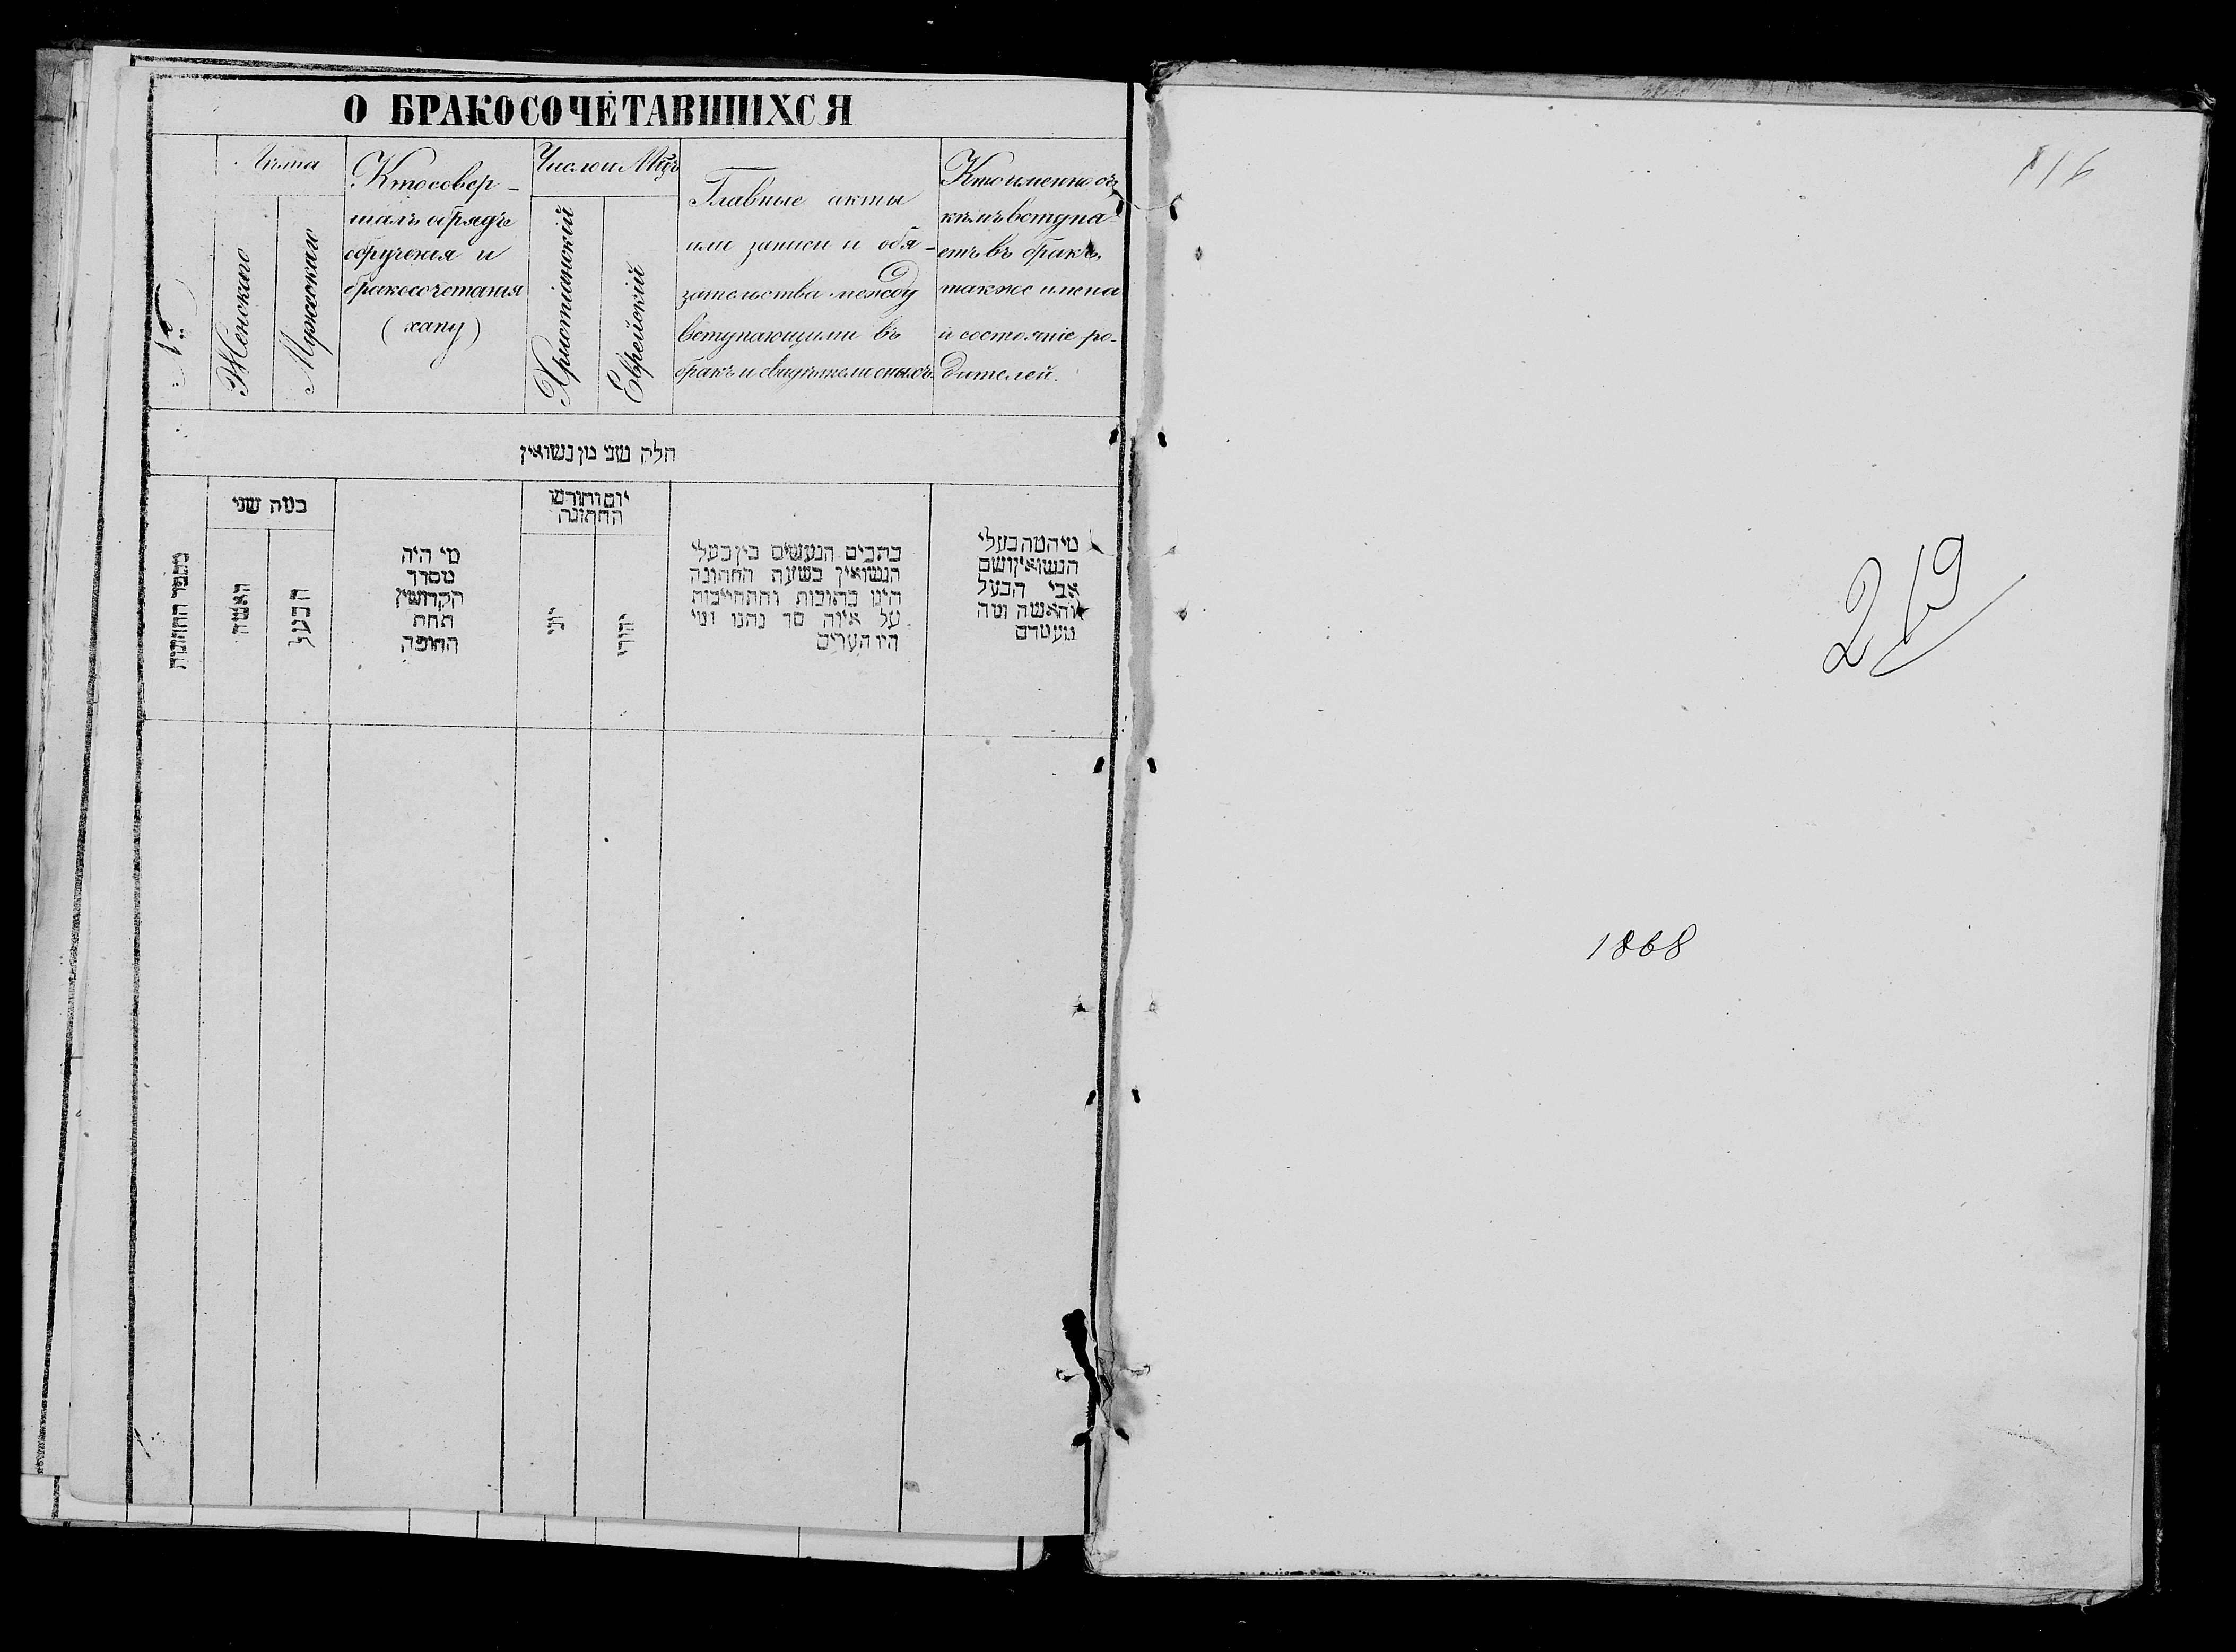 О БРАКОСОЧЕТАВШИХСЯ
№
Лѣта
Женскаго
Мужескаго
Кто совер-
шалъ обрядъ
обрученія и
бракосочетанія
(хапу)
Число и Мѣц
Христіанскій
Еврейскій
Главные акты
или записи и обя-
зательства между
вступающими въ
бракъ и свидѣтели оныхъ
Кто именно съ
кѣмъ вступа-
етъ въ бракъ,
также имена
и состояніе ро-
дителей.
חלק שני מן נשואין
מספר החתונות
כמה שני
האשה
הבעל
מי היה
מסדר
הקדושין
תחת
החופה
יום וחודש
החתונה
יוני
יהודי
כתבים הנעשים בין בעלי
הנשואין בשעת החתונה
היינו כתובות והתחייבות
על איזה סך נתנו ומי
היו העדים
מי המה בעלי
הנשואין ושם
אבי הבעל
והאשה ומה
מעמדם
116
219
1868